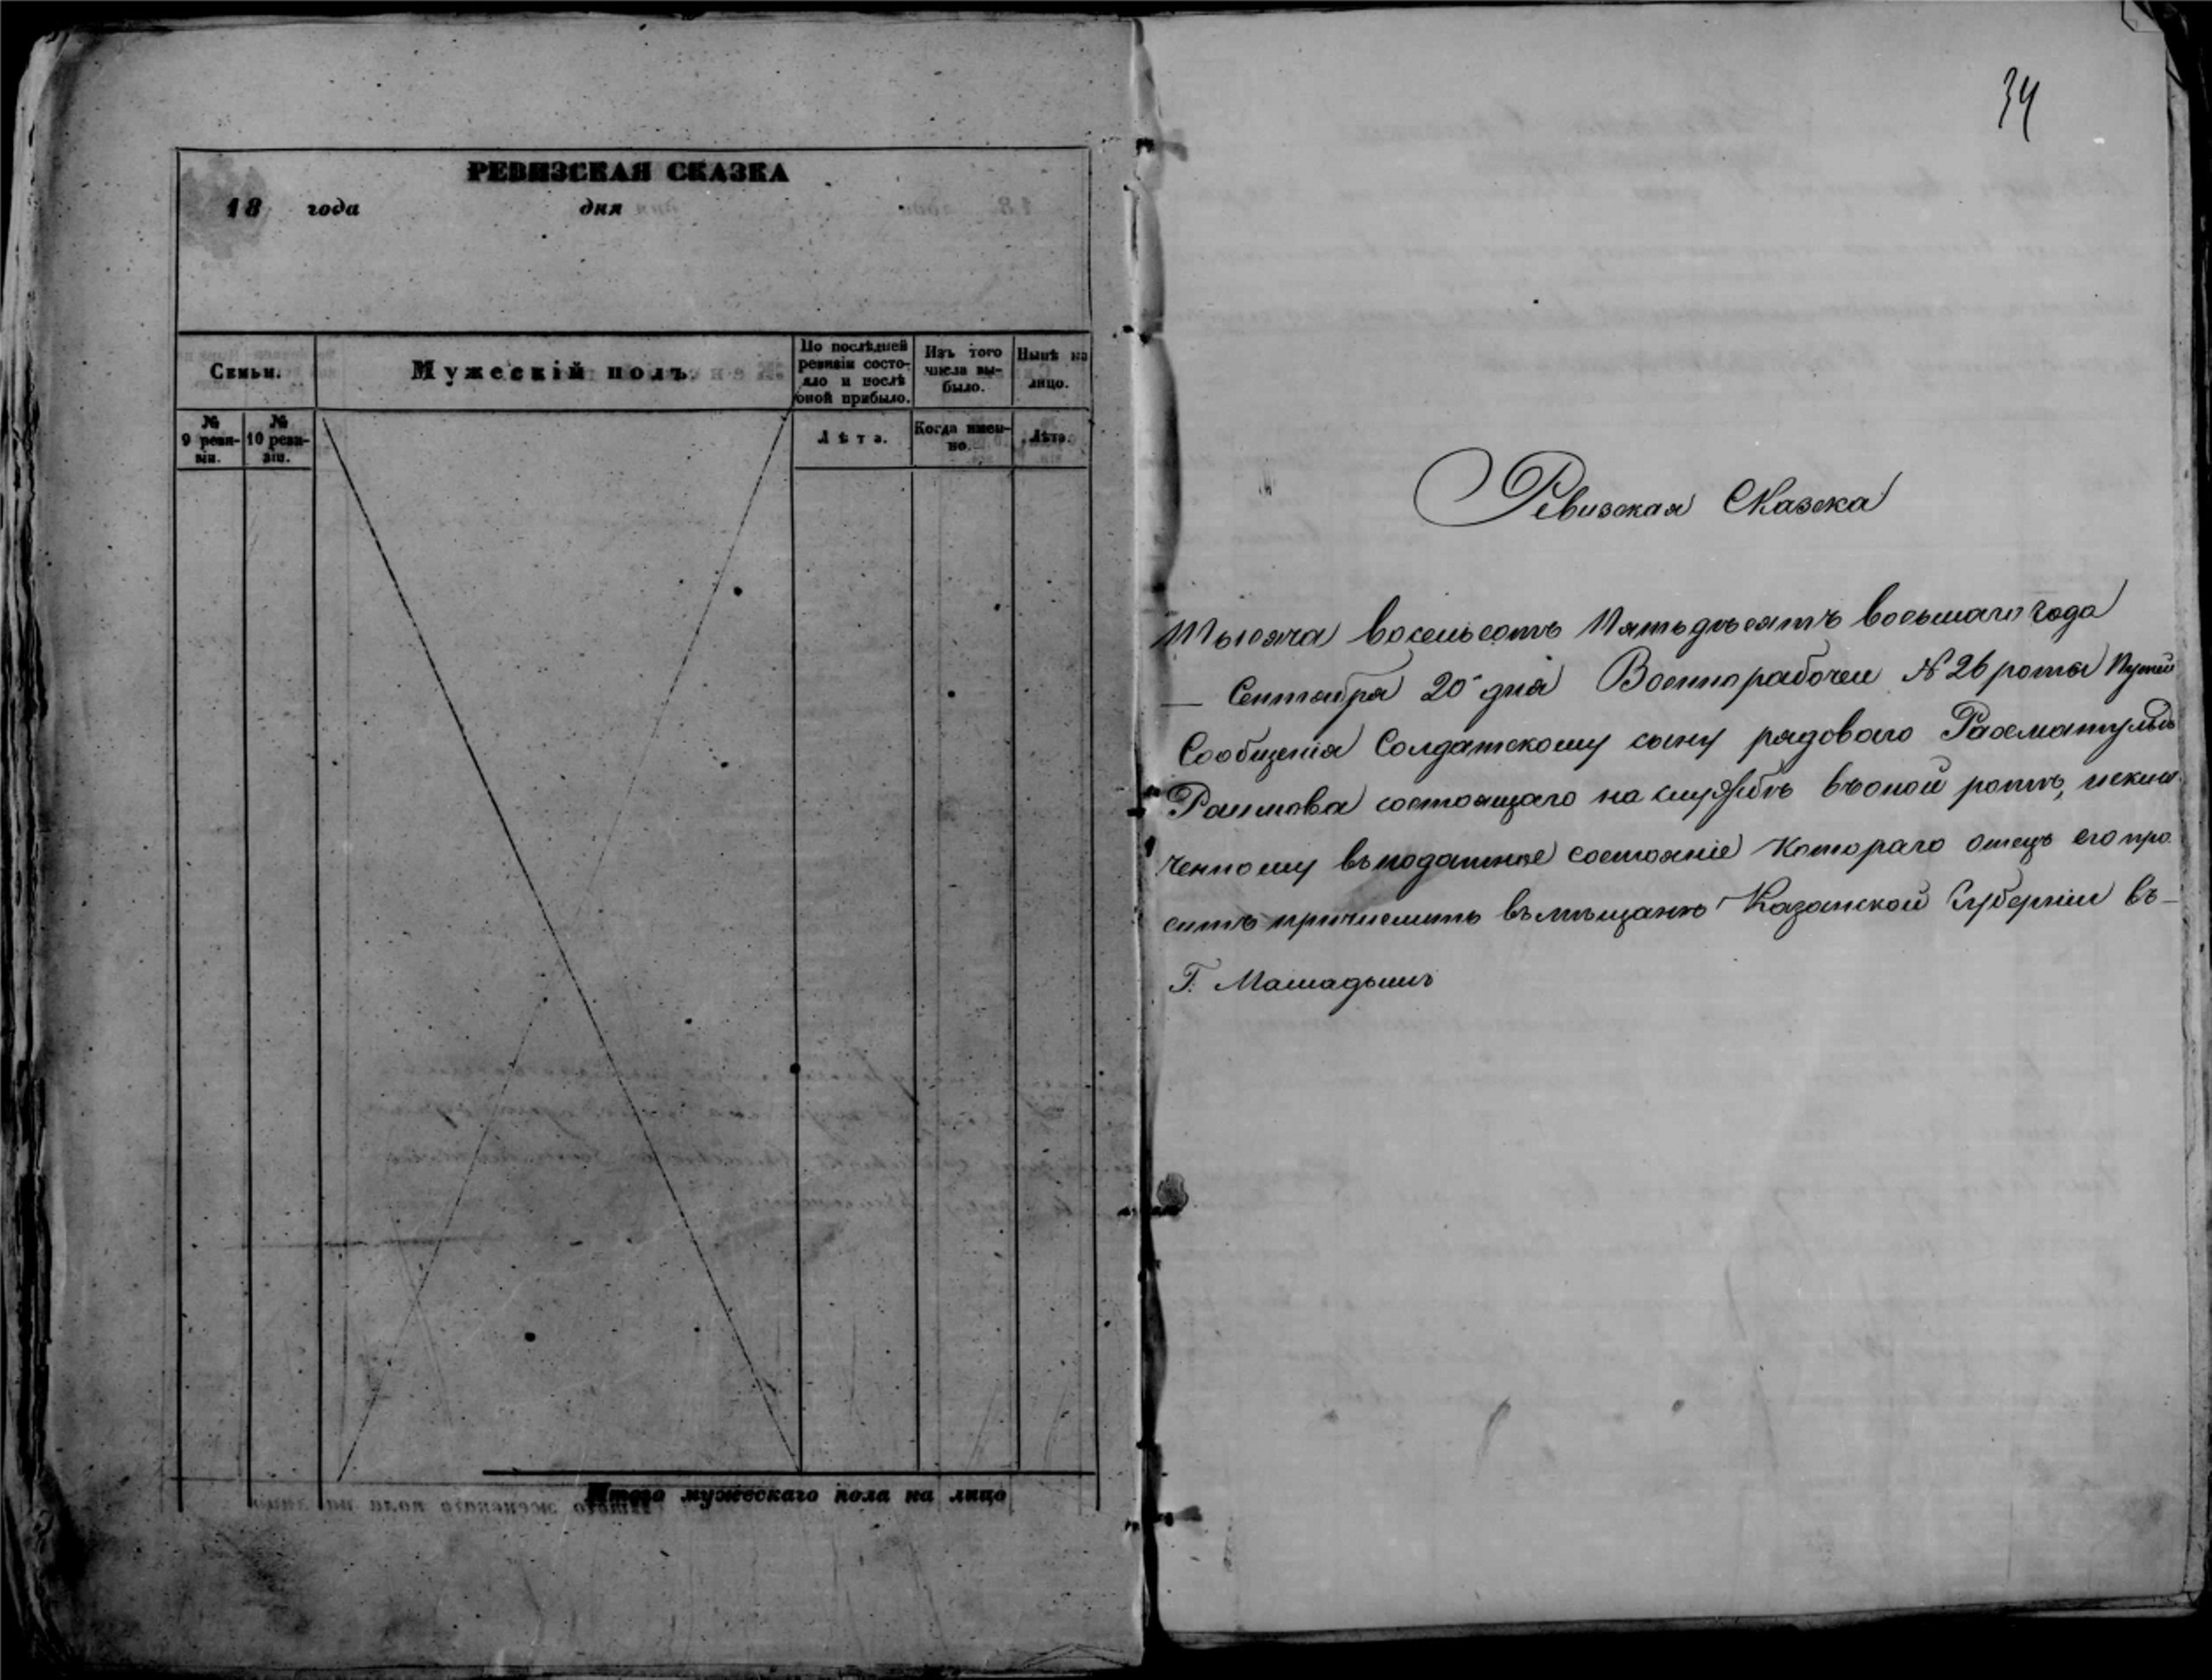 РЕВИЗСКАЯ СКАЗКА
18 года дня
Семьи.
Мужескій полъ.
По послѣдней ревизіи состояло и послѣ оной прибыло.
Изъ того числа выбыло.
Нынѣ на лицо.
№ 9 ревизіи.
№ 10 ревизіи.
Лѣта.
Когда именно.
Лѣта.
Итого мужескаго пола на лицо
34
Ревизская Сказка
Тысяча восемьсотъ Пятьдѣсятъ восьмаго года
Сентября 20 дня Военнорабочеи № 26 роты Путей
Сообщенія Солдатскому сыну рядоваго
состоящаго на службѣ въ оной ротѣ, исклю
ченному въ податное состояніе Котораго отецъ его про
ситъ причислить въ мѣщане Казанской Губерніи въ
Г. Мамадышъ